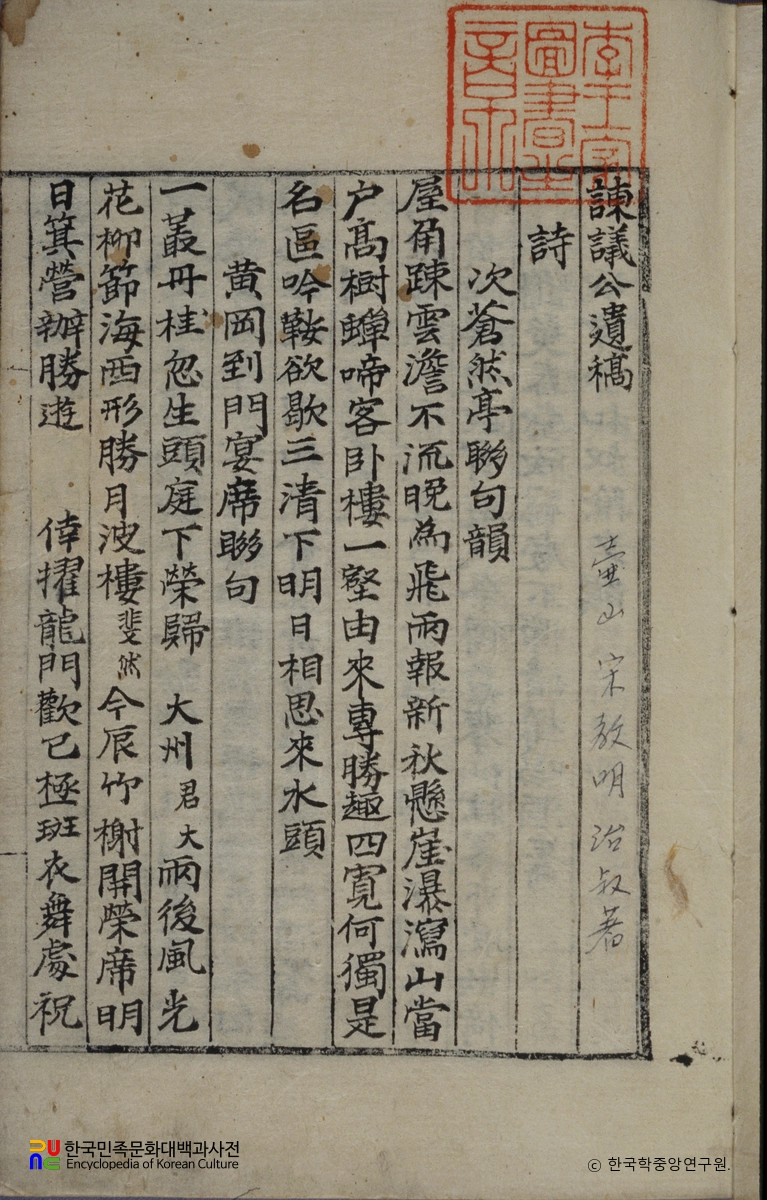 李王家圖書之章
諫議公遺稿 壺山 宋敎明治叔著
詩
次蒼然亭聯句韻
屋角踈雲澹不流晩為飛雨報新秋懸崖瀑瀉山當
户髙樹蟬啼客卧樓一壑由來專勝趣四寛何獨是
名區吟鞍欲歇三清下明日相思來水頭
黄岡到門宴席聯句
一叢丹桂忽生頭庭下榮歸 大州君大雨後風光
花柳節海西形勝月波樓斐然今辰竹榭開榮席明
日箕營辦勝遊 倖擢龍門歡已極班衣舞處祝
한국민족문화대백과사전
Encyclopedia of Korean Culture
© 한국학중앙연구원.